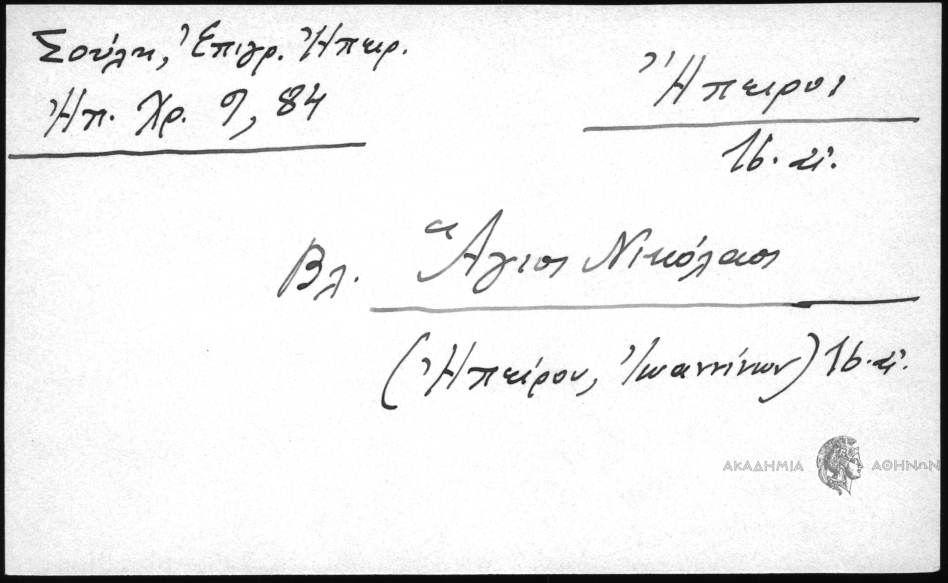 Σούλη, Ἐπιγρ. Ἠπειρ.
Ἠπ. Χρ. 9, 84
Ἤπειρος
16. αἰ.
Βλ. Ἅγιος Νικόλαος
(Ἠπείρου, Ἰωαννίνων) 16. αἰ.
ΑΚΑΔΗΜΙΑ ΑΘΗΝΩΝ